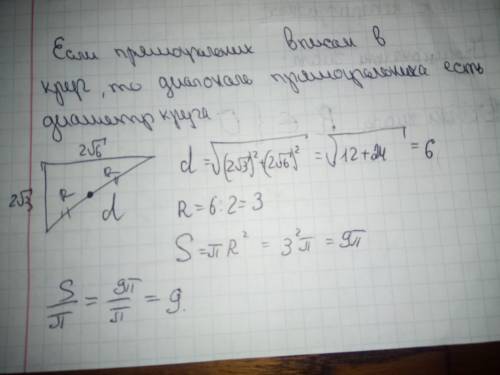 Если прямоугольник вписан в
круг, то диагональ прямоугольника есть
диаметр круга
2√6
2√3
R
R
d
d = √(2√3)² + (2√6)² = √12+24 = 6
R = 6:2 = 3
S = πR² = 3²π = 9π
S/π = 9π/π = 9.